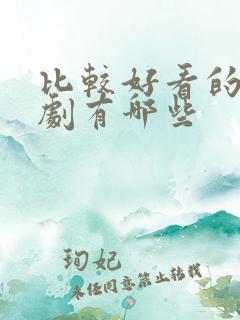 比較好看的
劇有哪些
珣妃
未经同意禁止转载